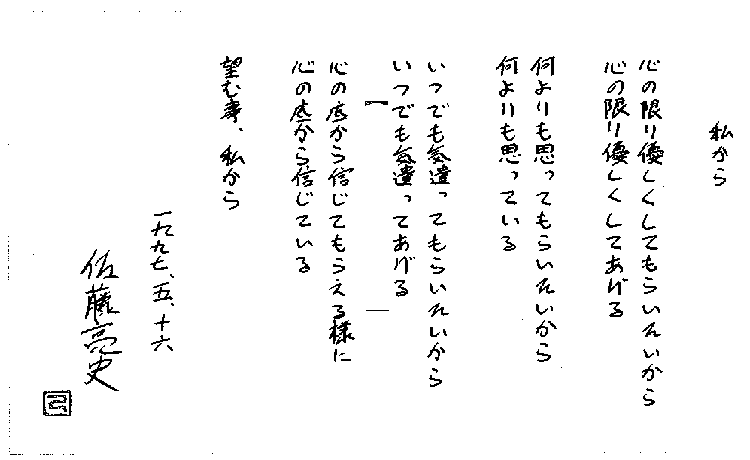 私から
心の限り優しくしてもらいたいから
心の限り優しくしてあげる
何よりも思ってもらいたいから
何よりも思っている
いつでも気遣ってもらいたいから
いつでも気遣ってあげる
心の底から信じてもらえる様に
心の底から信じている
望む事、私から
一九九七、五、十六
佐藤亮史